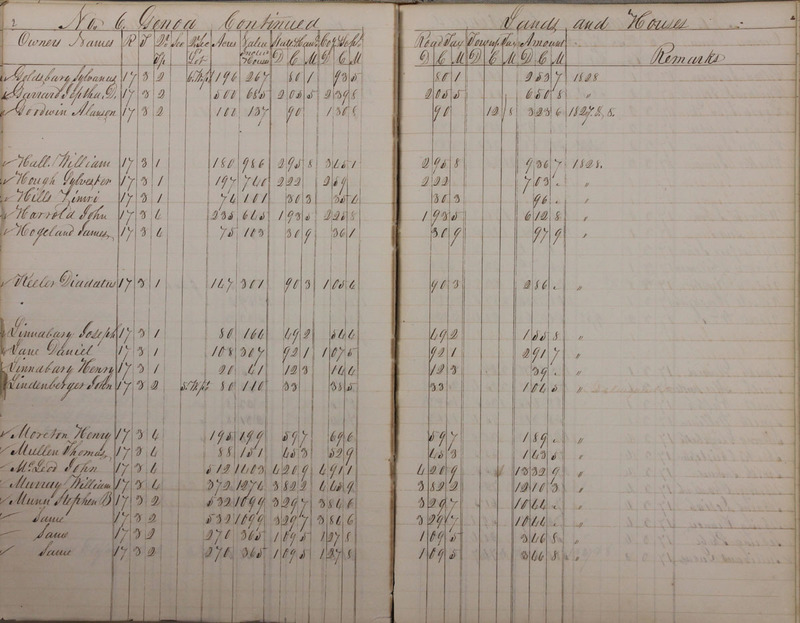 2 No. 6. Genoa Continued Lands and Houses
Owners Names R T Acres Road Tax Amount Remarks
D C M D C M D C M
Sylvanus 17 3 2 196 267 80 1 93 5 80 1 2 53 7 1828
D. 17 3 2 500 685 2 05 5 2 39 8 2 05 5 6 50 8 "
Goodwin 17 3 2 100 137 90 90 12 8 3 23 6 1827 & 8.
Hall William 17 3 1 180 986 2 95 8 3 45 1 2 95 8 9 36 7 1828.
Hough Sylvester 17 3 1 197 740 2 22 2 59 2 22 7 03 "
Hills 17 3 1 74 101 30 3 35 4 30 3 96 "
Harrold John 17 3 6 235 645 1 93 5 2 25 8 1 93 5 6 12 8 "
Hogeland James 17 3 6 75 103 30 9 36 1 30 9 97 9 "
Keeler 17 3 1 167 301 90 3 1 05 4 90 3 2 86 "
Joseph 17 3 1 80 164 49 2 49 2 1 55 8 "
Lane Daniel 17 3 1 108 307 92 1 1 07 5 92 1 2 91 7 "
Henry 17 3 1 20 41 12 3 14 4 12 3 39 "
Lindenberger John 17 3 2 80 110 33 38 5 33 1 04 5 "
Moreton Henry 17 3 6 195 199 59 7 69 6 59 7 1 89 "
Mullen Thomas 17 3 6 88 151 45 3 52 9 45 3 1 43 5 "
McLeod John 17 3 6 512 1403 4 20 9 4 91 1 4 20 9 13 32 9 "
Murray William 17 3 6 372 1274 3 82 2 4 45 9 3 82 2 12 10 3 "
Stephen B 17 3 2 532 1099 3 29 7 3 84 6 3 29 7 10 44 "
Same 17 3 2 532 1099 3 29 7 3 84 6 3 29 7 10 44 "
Same 17 3 2 270 365 1 09 5 1 27 8 1 09 5 3 46 8 "
Same 17 3 2 270 365 1 09 5 1 27 8 1 09 5 3 46 8 "